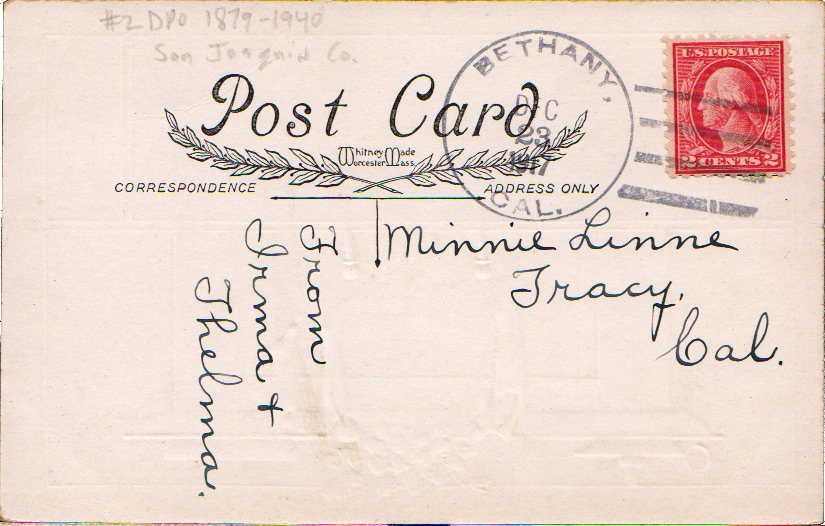 #2 DPO 1879-1940
San Joaquin Co.
Post Card
Whitney Made
Worcester Mass.
CORRESPONDENCE
ADDRESS ONLY
BETHANY,
DEC
23
1917
CAL.
U.S. POSTAGE
2 CENTS 2
Minnie Linne
Tracy,
Cal.
From
Irma &
Thelma.